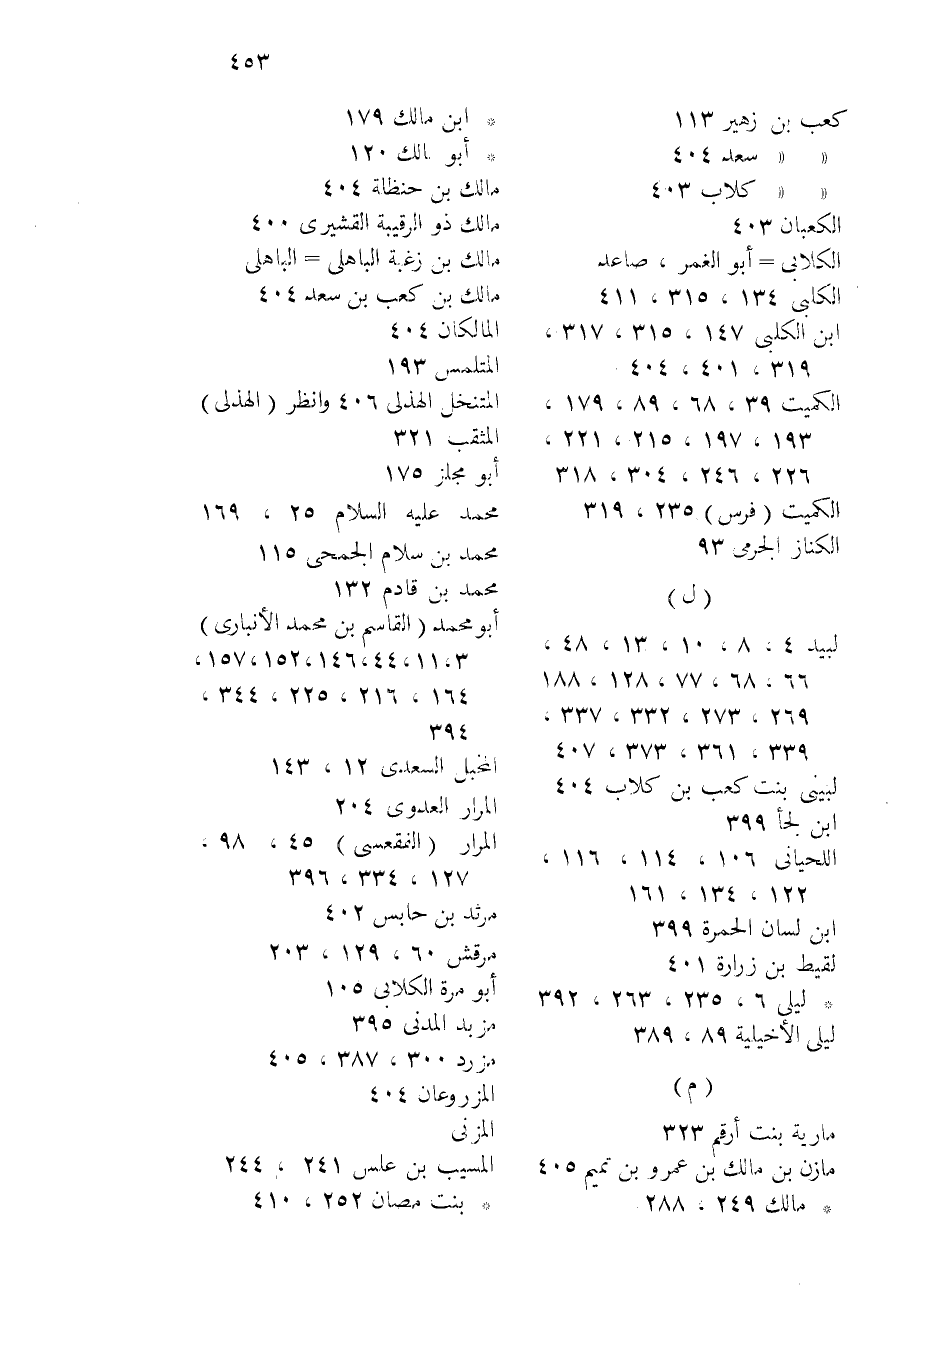 ٤٥٣
كعب بن زهير ١١٣
» » سعد ٤٠٤
» » كلاب ٤٠٣
الكعبان ٤٠٣
الكلابى = أبو الغمر ، صاعد
الكلبى ١٣٤ ، ٣١٥ ، ٤١١
ابن الكلبى ١٤٧ ، ٣١٥ ، ٣١٧ ،
٣١٩ ، ٤٠١ ، ٤٠٤
الكميت ٣٩ ، ٦٨ ، ٨٩ ، ١٧٩ ،
١٩٣ ، ١٩٧ ، ٢١٥ ، ٢٢١ ،
٢٢٦ ، ٢٤٦ ، ٣٠٤ ، ٣١٨
الكميت ( فرس ) ٢٣٥ ، ٣١٩
الكناز الجرمى ٩٣
( ل )
لبيد ٤ ، ٨ ، ١٠ ، ١٣ ، ٤٨ ،
٦٦ ، ٦٨ ، ٧٧ ، ١٢٨ ، ١٨٨
٢٦٩ ، ٢٧٣ ، ٣٣٢ ، ٣٣٧ ،
٣٣٩ ، ٣٦١ ، ٣٧٣ ، ٤٠٧
لبينى بنت كعب بن كلاب ٤٠٤
ابن لجأ ٣٩٩
اللحيانى ١٠٦ ، ١١٤ ، ١١٦ ،
١٢٢ ، ١٣٤ ، ١٦١
ابن لسان الحمرة ٣٩٩
لقيط بن زرارة ٤٠١
* ليلى ٦ ، ٢٣٥ ، ٢٦٣ ، ٣٩٢
ليلى الأخيلية ٨٩ ، ٣٨٩
( م )
مارية بنت أرقم ٣٢٣
مازن بن مالك بن عمرو بن تميم ٤٠٥
* مالك ٢٤٩ ، ٢٨٨
* ابن مالك ١٧٩
* أبو مالك ١٢٠
مالك بن حنظلة ٤٠٤
مالك ذو الرقيبة القشيرى ٤٠٠
مالك بن زغبة الباهلى = الباهلى
مالك بن كعب بن سعد ٤٠٤
المالكان ٤٠٤
المتلمس ١٩٣
المتنخل الهذلى ٤٠٦ وانظر ( الهذلى )
المثقب ٣٢١
أبو مجلز ١٧٥
محمد عليه السلام ٢٥ ، ١٦٩
محمد بن سلام الجمحى ١١٥
محمد بن قادم ١٣٢
أبو محمد ( القاسم بن محمد الأنبارى )
٣ ، ١١ ، ٤٤ ، ١٤٦ ، ١٥٢ ، ١٥٧ ،
١٦٤ ، ٢١٦ ، ٢٢٥ ، ٣٤٤ ،
٣٩٤
المخبل السعدى ١٢ ، ١٤٣
المرار العدوى ٢٠٤
المرار ( الفقعسى ) ٤٥ ، ٩٨ ،
١٢٧ ، ٣٣٤ ، ٣٩٦
مرثد بن حابس ٤٠٢
مرقش ٦٠ ، ١٢٩ ، ٢٠٣
أبو مرة الكلابى ١٠٥
مزبد المدنى ٣٩٥
مزرد ٣٠٠ ، ٣٨٧ ، ٤٠٥
المزروعان ٤٠٤
المزنى
المسيب بن علس ٢٤١ ، ٢٤٤
* بنت مصان ٢٥٢ ، ٤١٠